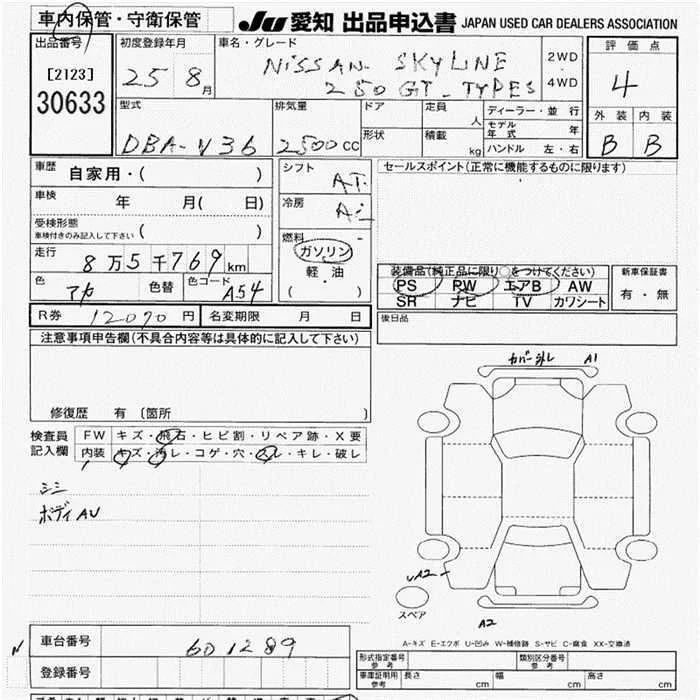 車内保管・守衛保管 JU 愛知 出品申込書 JAPAN USED CAR DEALERS ASSOCIATION
出品番号 初度登録年月 車名・グレード 2WD 評価点
[2123] 25 8月 NISSAN SKYLINE 4
30633 250GT-TYPES 4WD
型式 排気量 ドア 定員 人 ディーラー・並行 外装 内装
モデル年式 年
DBA-V36 2500CC 形状 積載 kg ハンドル 左・右 B B
車歴 自家用・( ) シフト AT セールスポイント(正常に機能するものに限ります)
車検 年 月( 日) 冷房
受検形態 ( )
車検付きのみ記入して下さい
燃料
走行 8万5千769km ガソリン
軽油
( )
装備品(純正品に限り○をつけてください) 新車保証書
色 アカ 色替 色コード A54 PS PW エアB AW 有・無
SR ナビ TV カワシート
R券 12070円 名変期限 月 日 後日品
注意事項申告欄(不具合内容等は具体的に記入して下さい)
カバー外レ A1
修復歴 有(箇所 )
検査員 FW キズ・飛石・ヒビ割・リペア跡・X要
記入欄 内装 キズ・汚レ・コゲ・穴・スレ・キレ・破レ
シミ
ボディAU
A2
スペア
A2
A-キズ E-エクボ U-凹み W-補修跡 S-サビ C-腐食 XX-交換済
車台番号 601289
登録番号
形式指定番号 参考 類別区分番号 参考
車庫証明用 参考 長さ cm 幅 cm 高さ cm